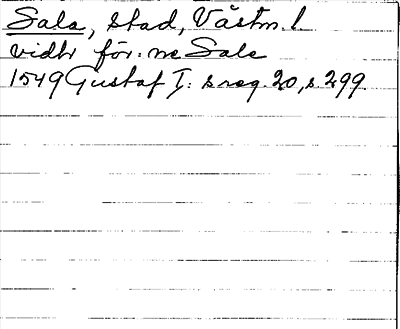 Sala, stad, Västm. l.
vidh för:ne Sale
1549 Gustaf I:s reg. 20, s. 299.